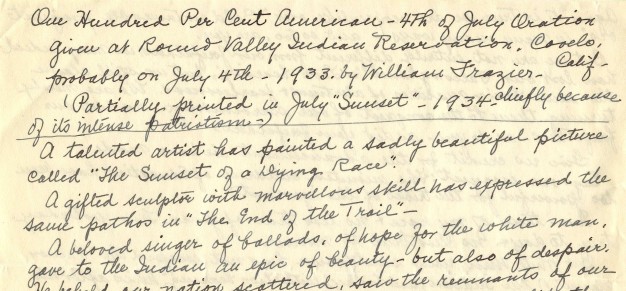 One Hundred Per Cent American - 4th of July Oration
given at Round Valley Indian Reservation. Covelo,
Calif-
probably on July 4th - 1933. by William Frazier-
(Partially printed in July "Sunset" - 1934 - chiefly because
of its intense patriotism-)
A talented artist has painted a sadly beautiful picture
called "The Sunset of a Dying Race".
A gifted sculptor with marvellous skill has expressed the
same pathos in "The End of the Trail" -
A beloved singer of ballads, of hope for the white man,
gave to the Indian an epic of beauty - but also of despair.
He beheld our nation scattered, saw the remnants of our